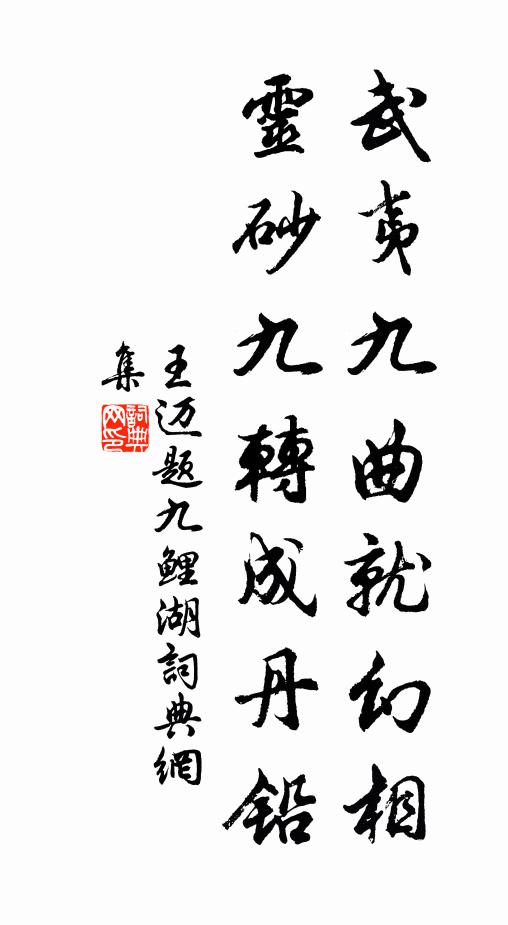 武夷九曲就幻相
靈砂九轉成丹鉛
王迈题九鯉湖詞典網
集
詞典网印